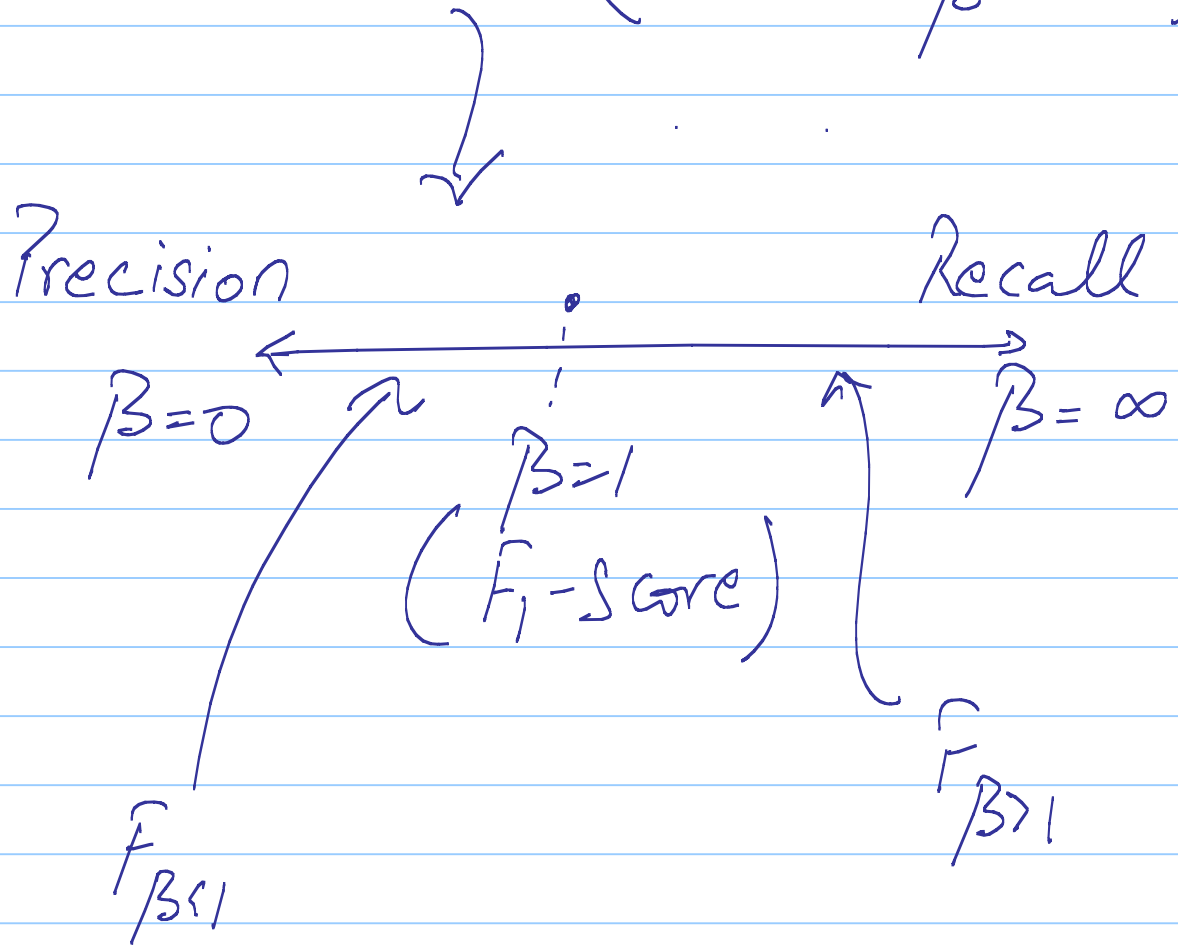 Precision Recall
β=0 β= ∞
β=1
(F₁-Score)
F β>1
F β<1